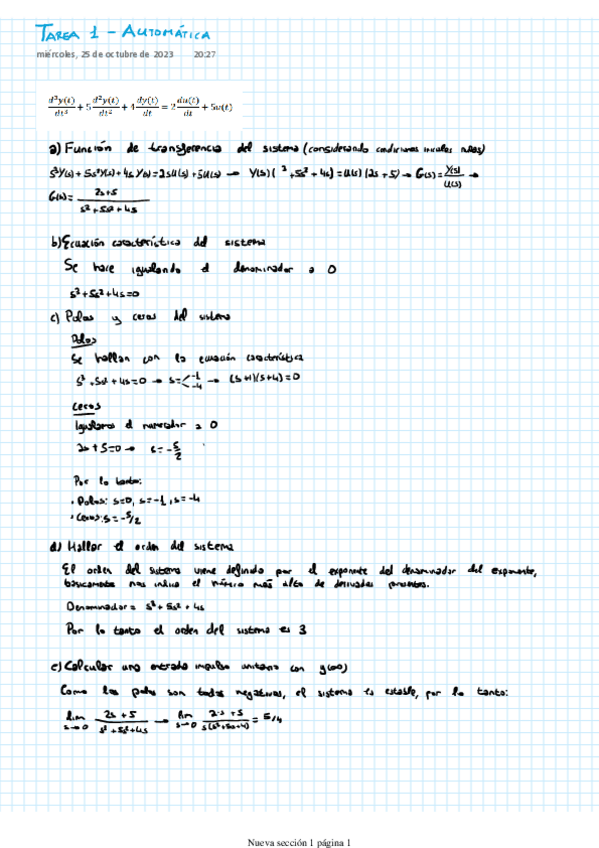 TAREA 1 - AUTOMÁTICA
miércoles, 25 de octubre de 2023 20:27
d³y(t)/dt³ + 5 d²y(t)/dt² + 4 dy(t)/dt = 2 du(t)/dt + 5u(t)
a) Función de transferencia del sistema (considerando condiciones iniciales nulas)
s³Y(s) + 5s²Y(s) + 4s Y(s) = 2sU(s) + 5U(s) → Y(s)( ³ + 5s² + 4s) = U(s) (2s + 5) → G(s) = Y(s)/U(s) →
G(s) = 2s+5 / s³ + 5s² + 4s
b) Ecuación característica del sistema
Se hace igualando el denominador a 0
s³ + 5s² + 4s = 0
c) Polos y ceros del sistema
Polos
Se hallan con la ecuación característica
s³ + 5s² + 4s = 0 → s = < -1 -4 → (s+1)(s+4) = 0
Ceros
Igualamos el numerador a 0
2s + 5 = 0 → s = -5/2
Por lo tanto:
· Polos: s=0, s=-1, s=-4
· Ceros: s = -5/2
d) Hallar el orden del sistema
El orden del sistema viene definido por el exponente del denominador del exponente,
basicamente nos indica el número más alto de derivadas presentes.
Denominador = s³ + 5s² + 4s
Por lo tanto el orden del sistema es 3
e) Calcular una entrada impulso unitario con y(∞)
Como los polos son todos negativos, el sistema es estable, por lo tanto:
lim s→0 2s + 5 / s³ + 5s² + 4s → lim s→0 2·s + 5 / s(s²+5s+4) = 5/4
Nueva sección 1 página 1